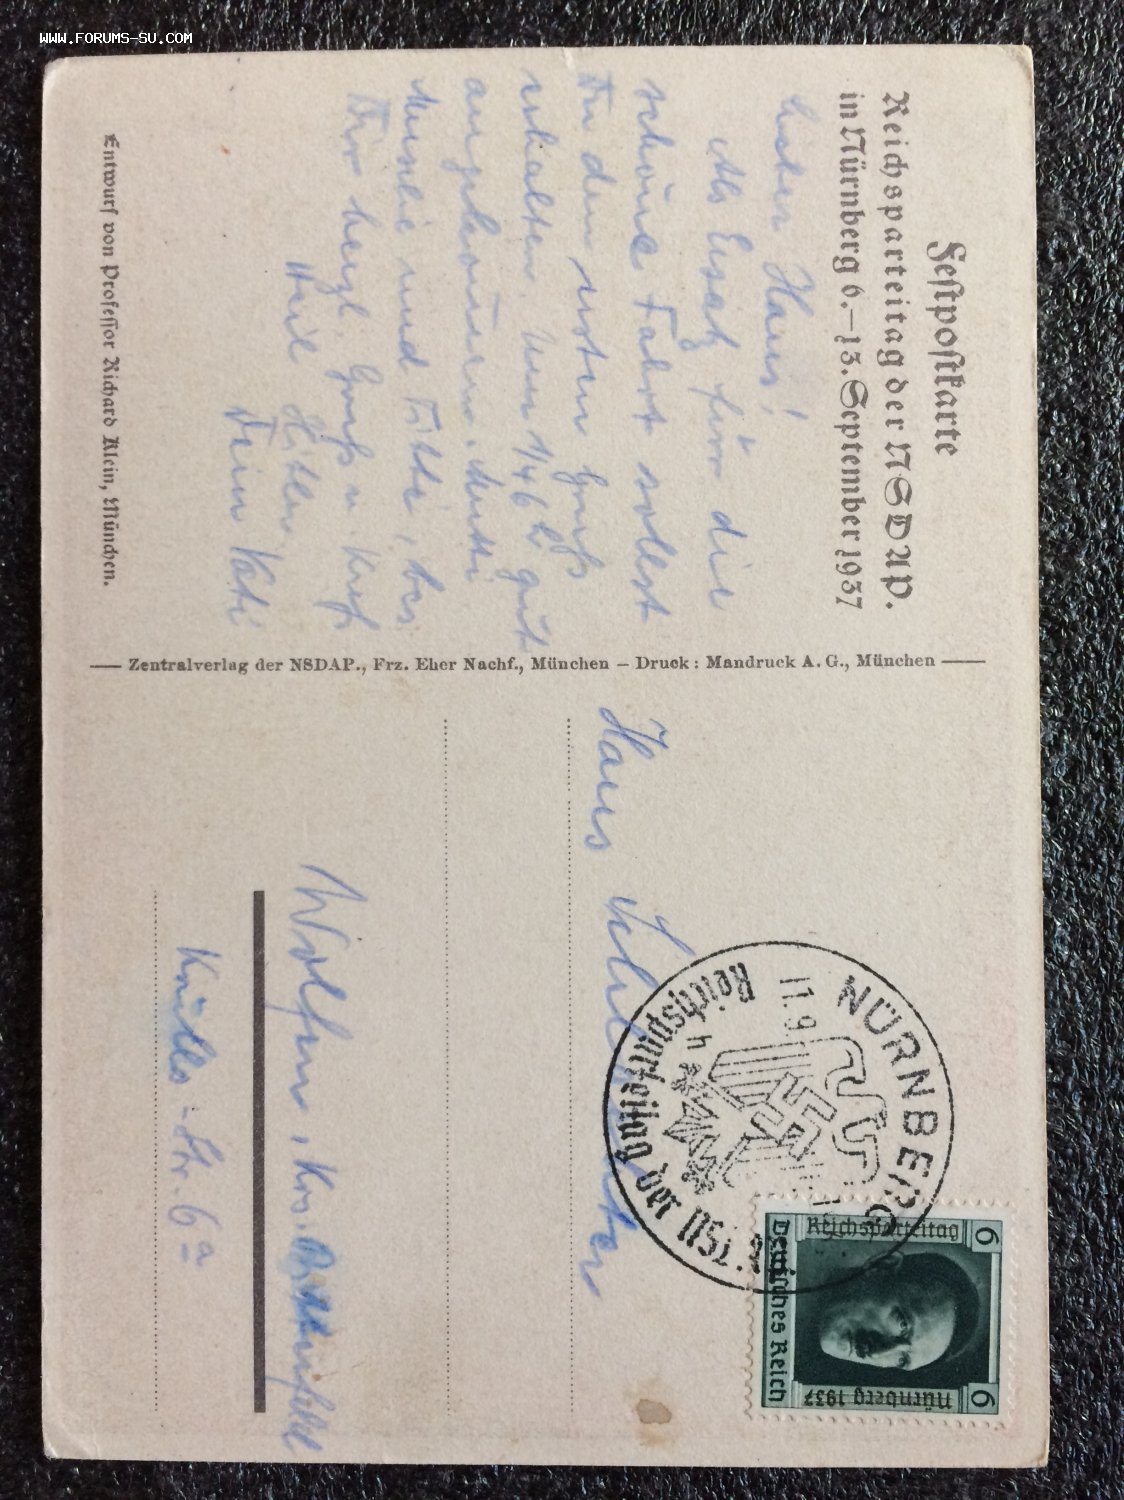 WWW.FORUMS-SU.COM
Festpostkarte
Reichsparteitag der NSDAP.
in Nürnberg 6.–13. September 1937
Lieber Hans!
Als Ersatz für die
schöne Fahrt sollst
Du den ersten Gruß
erhalten. Um 1/4 6 h gut
angekommen. Mutti
und Titti, bes.
Dir herzl. Gruß u. Kuß
Heil Hitler
Dein Vati
Entwurf von Professor Richard Klein, München.
Zentralverlag der NSDAP., Frz. Eher Nachf., München – Druck: Mandruck A. G., München
Hans
Wolfen, Krs. Bitterfeld
-Str. 6a
NÜRNBERG
11.9.
Reichsparteitag der NSD
6 Reichsparteitag
Deutsches Reich
Nürnberg 1937 6